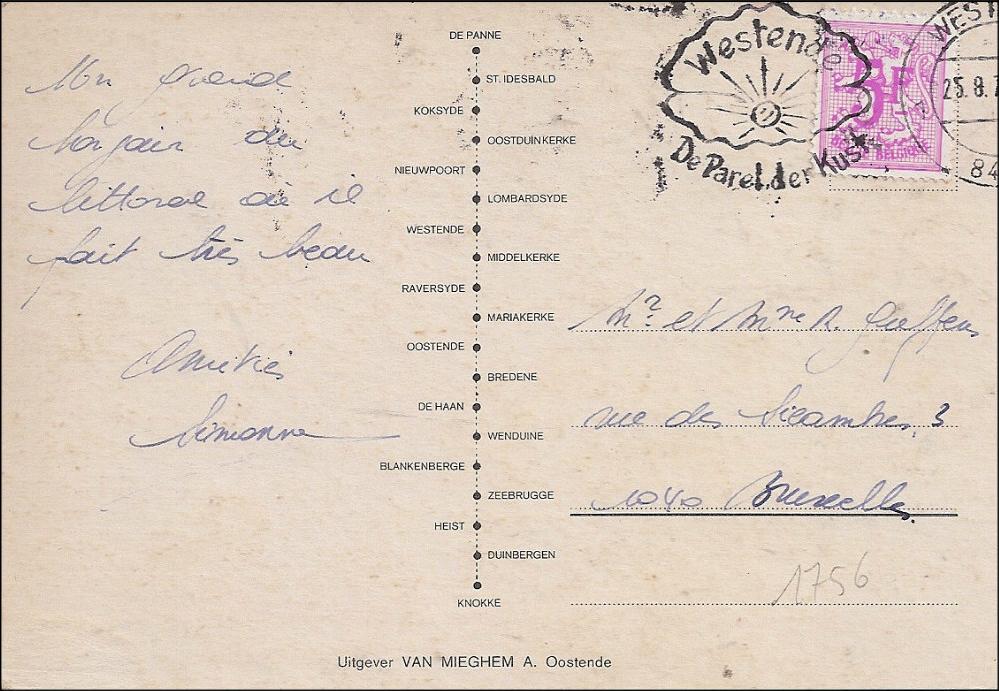 Mon grand
bonjour du
littoral où il
fait très beau
Amitiés
Simonne
DE PANNE
ST. IDESBALD
KOKSYDE
OOSTDUINKERKE
NIEUWPOORT
LOMBARDSYDE
WESTENDE
MIDDELKERKE
RAVERSYDE
MARIAKERKE
OOSTENDE
BREDENE
DE HAAN
WENDUINE
BLANKENBERGE
ZEEBRUGGE
HEIST
DUINBERGEN
KNOKKE
Uitgever VAN MIEGHEM A. Oostende
Westende
De Parel der Kust
3F
BELGIE BELGIQUE
WEST
25.8.7
84
Mr et Mme R.
rue des Sicambres, 3
1040 Bruxelles
1756